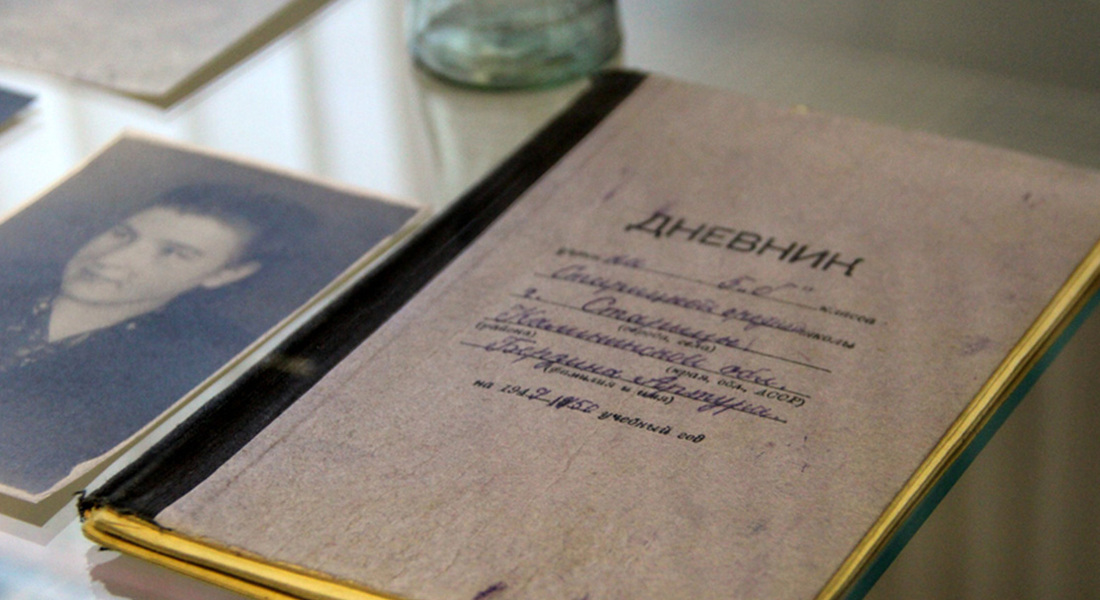 ДНЕВНИК
5 "б" класса
Старицкой средн. школы
г. Старицы.
(город, село)
Калининской обл.
(района) (края, обл., АССР)
Артура.
(фамилия и имя)
учебный год